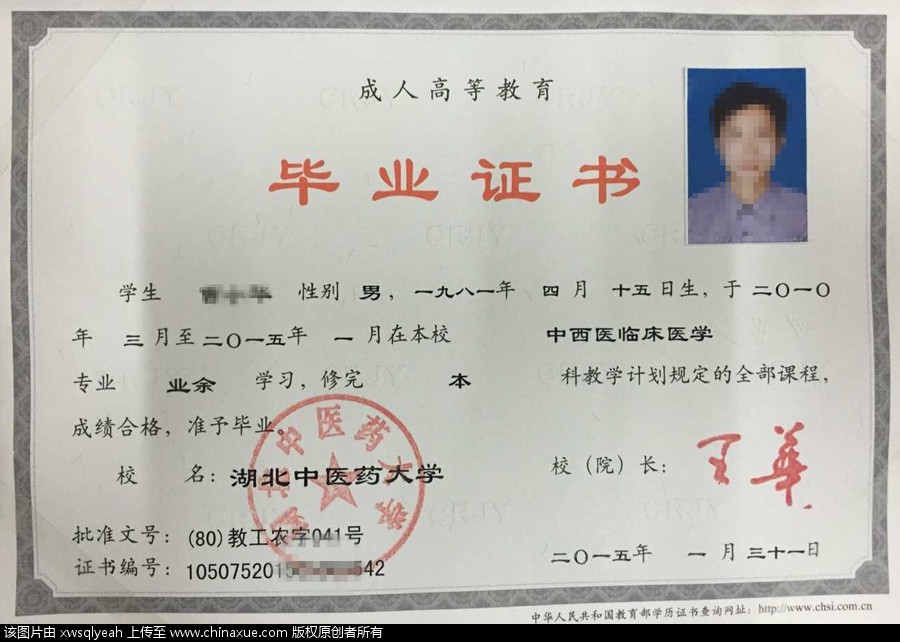 成人高等教育
毕业证书
学生 性别 男，一九八一年 四月 十五日生，于二〇一〇
年 三月至二〇一五年 一月在本校 中西医临床医学
专业 业余 学习，修完 本 科教学计划规定的全部课程，
成绩合格，准予毕业。
校 名：湖北中医药大学
校（院）长：王华
批准文号：(80)教工农字041号
证书编号：105075201 542
二〇一五年 一月三十一日
中华人民共和国教育部学历证书查询网址：http://www.chsi.com.cn
该图片由 xwsqlyeah 上传至 www.chinaxue.com 版权原创者所有